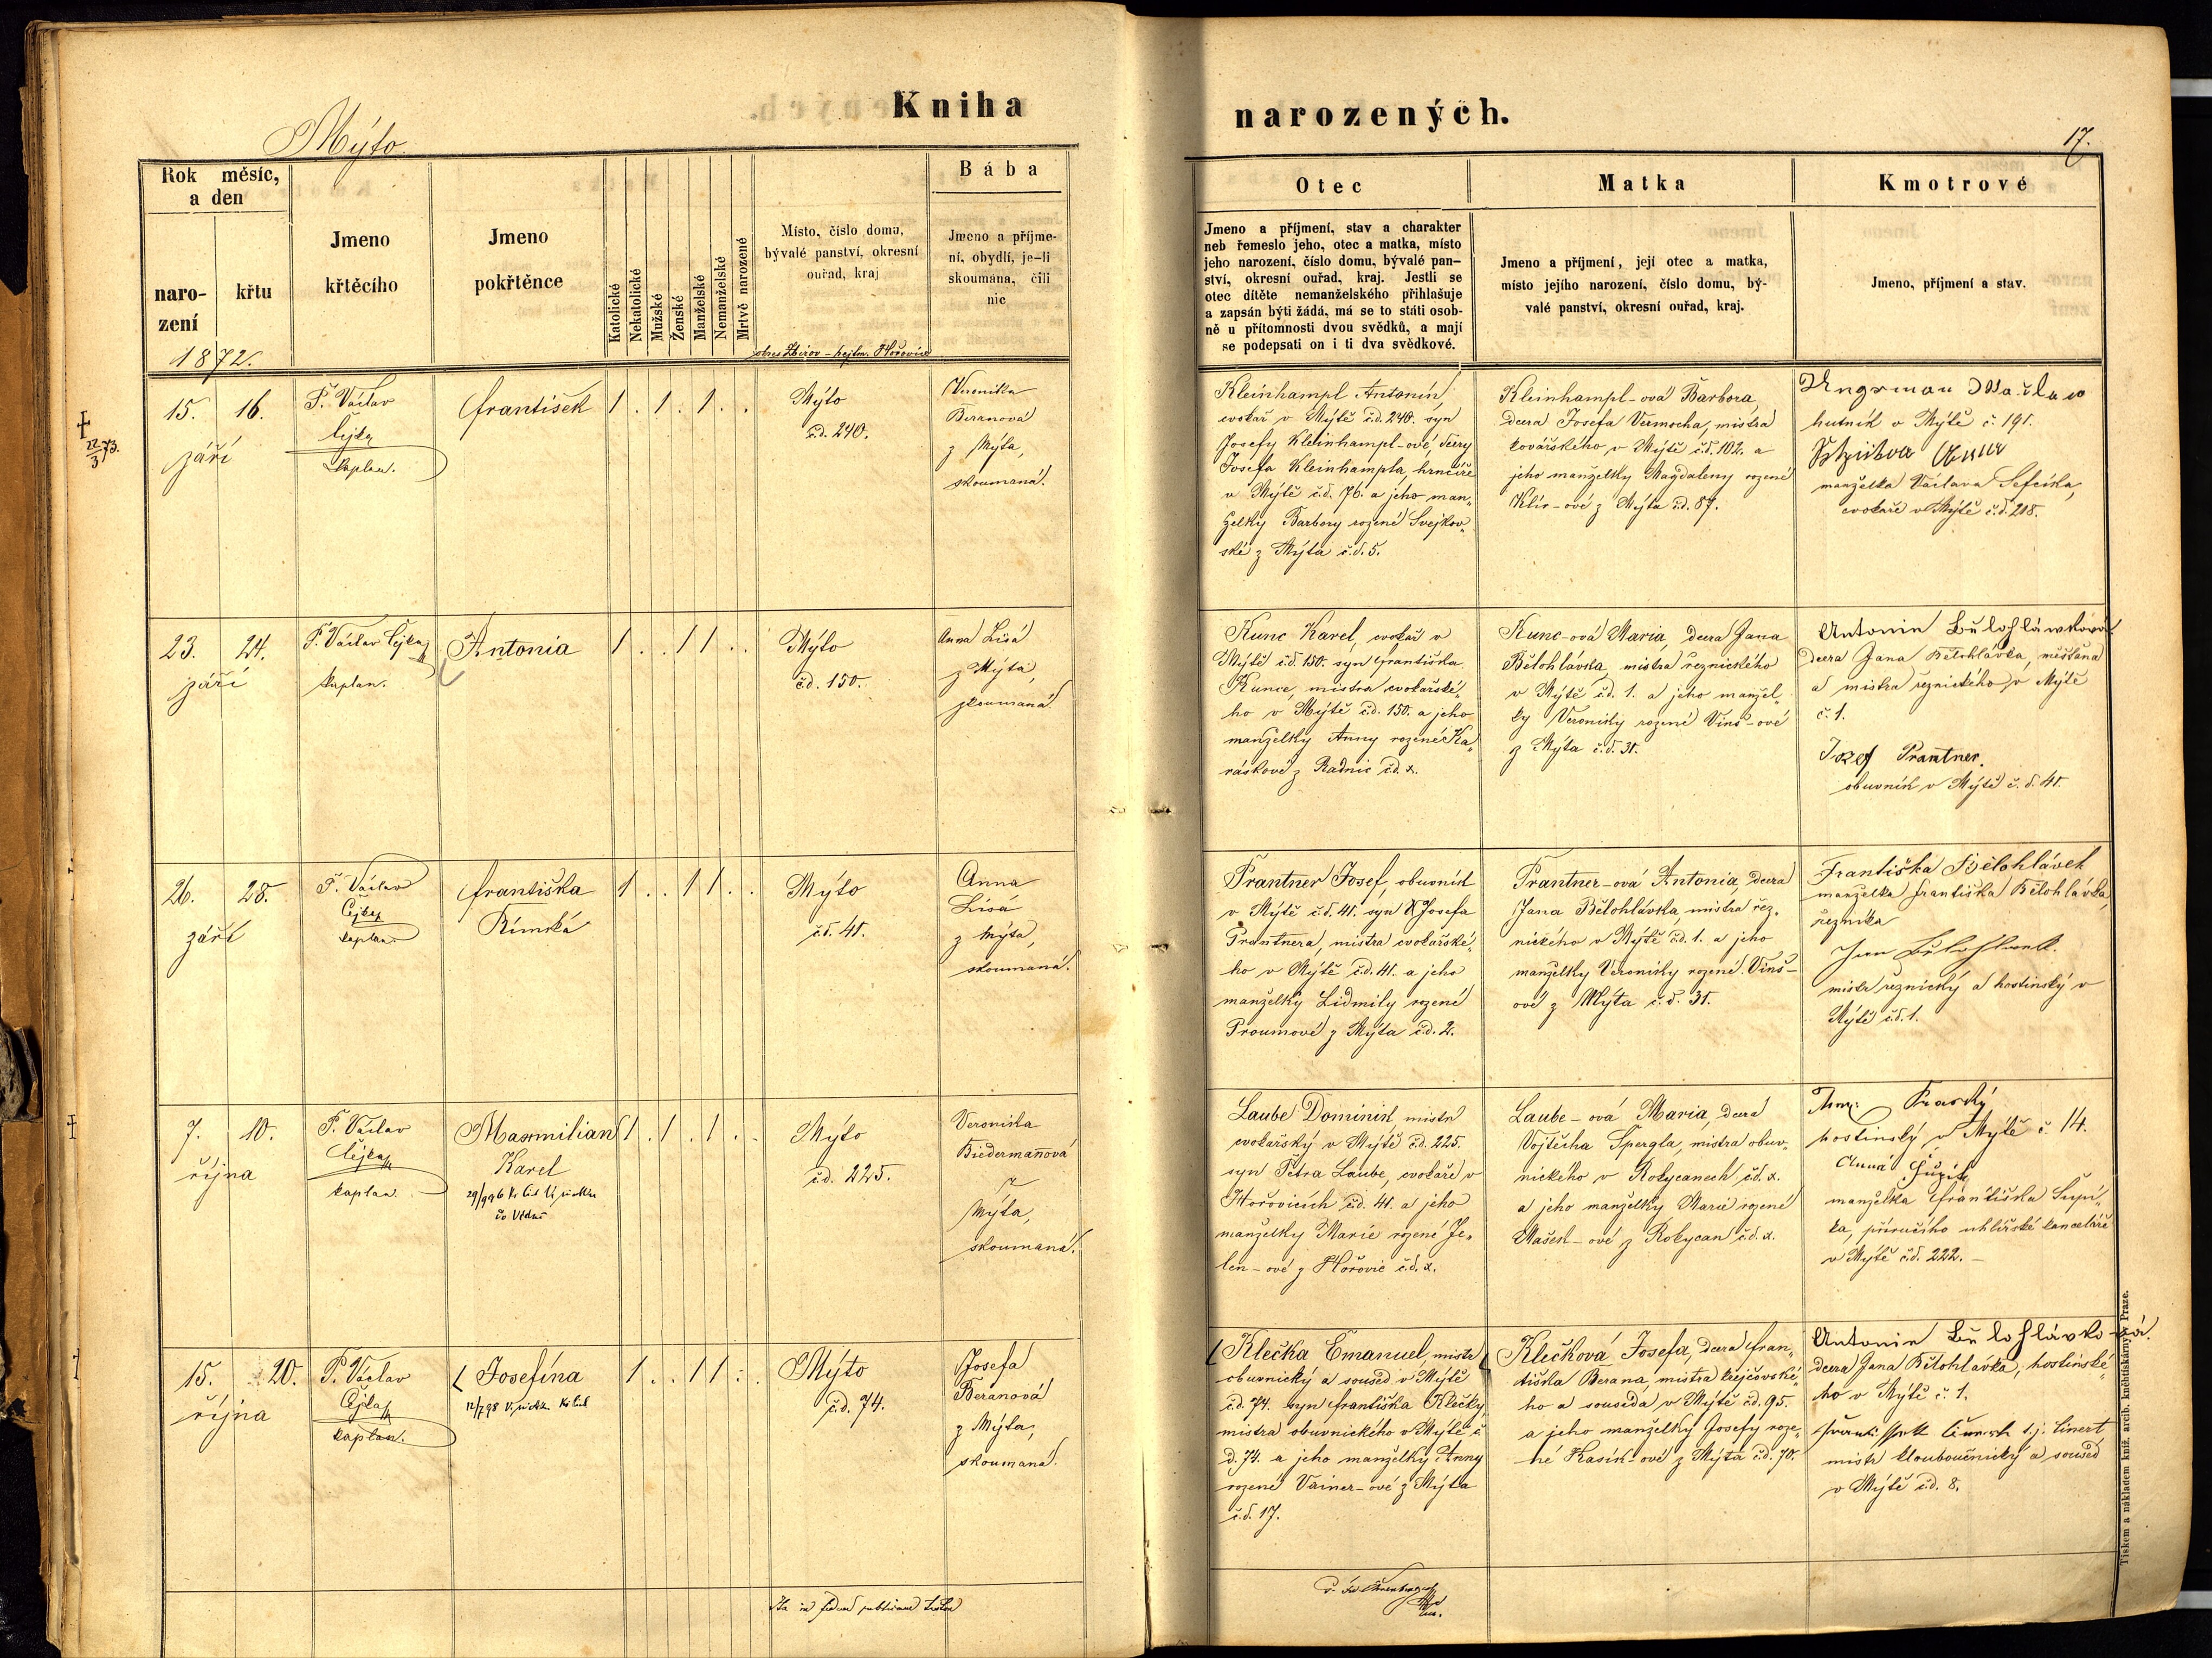 Kniha
narozených.
Mýto.
17.
Rok měsíc,
a den
naro-
zení
křtu
1872.
Jmeno
křtěcího
Jmeno
pokřtěnce
Katolické
Nekatolické
Mužské
Ženské
Manželské
Nemanželské
Mrtvě narozené
Místo, číslo domu,
bývalé panství, okresní
ouřad, kraj
okres Zbirov – hejtm. Hořovice
Bába
Jmeno a příjme-
ní, obydlí, je-li
skoumána, čili
nic
Otec
Jmeno a příjmení, stav a charakter
neb řemeslo jeho, otec a matka, místo
jeho narození, číslo domu, bývalé pan-
ství, okresní ouřad, kraj. Jestli se
otec dítěte nemanželského přihlašuje
a zapsán býti žádá, má se to státi osob-
ně u přítomnosti dvou svědků, a mají
se podepsati on i ti dva svědkové.
Matka
Jmeno a příjmení, její otec a matka,
místo jejího narození, číslo domu, bý-
valé panství, okresní ouřad, kraj.
Kmotrové
Jmeno, příjmení a stav.
† 22/3 73.
15. 16.
září
P. Václav
Čejka
kaplan.
František
1 . 1 . 1 . .
Mýto
č.d. 240.
Veronika
Beranová
z Mýta,
skoumaná.
Kleinhampl Antonín,
cvokař v Mýtě č.d. 240. syn
Josefy Kleinhampl-ové, dcery
Josefa Kleinhampla hrnčíře
v Mýtě č.d. 76. a jeho man„
želky Barbory rozené Svejkov„
ské z Mýta č.d. 5.
Kleinhampl-ová Barbora,
dcera Josefa Vermocha, mistra
kovářského v Mýtě č.d. 102. a
jeho manželky Magdaleny rozené
Klír-ové z Mýta č.d. 87.
Ungrman Wáclaw
hutník v Mýtě č. 191.
manželka Václava Sefcika,
cvokaře v Mýtě č.d. 218.
23. 24.
září
P. Václav Čejka
kaplan.
Antonia
1 . . 1 1 . .
Mýto
čd. 150.
Anna Lisá
z Mýta,
skoumaná.
Kunc Karel, cvokař v
Mýtě č.d. 150. syn Františka
Kunce, mistra cvokařské„
ho v Mýtě č.d. 150. a jeho
manželky Anny rozené Ka„
ráskové z Radnic čd. x.
Kunc-ová Maria, dcera Jana
Bělohlávka, mistra řeznického
v Mýtě č.d. 1. a jeho manžel„
ky Veroniky rozené Vinš-ové
z Mýta č.d. 31.
Antonie Bělohláwková
dcera Jana Bělohlávka, měšťana
a mistra řeznického v Mýtě
č. 1.
Josef Prantner.
obuvník v Mýtě č. d. 41.
26. 28.
září
P. Václav
Čejka
kaplan.
Františka
Římská
1 . . 1 1 . .
Mýto
č.d. 41.
Anna
Lisá
z Mýta,
skoumaná.
Prantner Josef, obuvník
v Mýtě č.d. 41. syn Josefa
Prantnera, mistra cvokařské„
ho v Mýtě č.d. 41. a jeho
manželky Lidmily rozené
Proumové z Mýta čd. 2.
Prantner-ová Antonia, dcera
Jana Bělohlávka, mistra řez„
nického v Mýtě č.d. 1. a jeho
manželky Veroniky rozené Vinš-
ové z Mýta č. d. 31.
Františka Bělohlávek
manželka Františka Bělohlávka,
řezníka
Jan Bělohlavek.
mistr řeznický a hostinský v
Mýtě č.d. 1.
†
7. 10.
října
P. Václav
Čejka
kaplan.
Maxmilian
Karel
1 . 1 . 1 . .
Mýto
č.d. 225.
Veronika
Biedermanová
z
Mýta,
skoumaná.
Laube Dominik, mistr
cvokařský v Mýtě č.d. 225.
syn Petra Laube, cvokaře v
Hořovicích č.d. 41. a jeho
manželky Marie rozené Je„
len-ové z Hořovic č.d. x.
Laube-ová Maria, dcera
Vojtěcha Špergla, mistra obuv„
nického v Rokycanech, č.d. x.
a jeho manželky Marie rozené
Mašek-ové z Rokycan č.d. x.
hostinský v Mýtě č 14.
Anna
manželka Františka Šupí„
ka, příručího uhlířské kanceláře
v Mýtě č.d. 222. –
15. 20.
října
P. Václav
Čejka
kaplan.
Josefína
1 . . 1 1 . .
Mýto
č.d. 74.
Josefa
Beranová
z Mýta,
skoumaná.
Klečka Emanuel, mistr
obuvnický a soused v Mýtě
č.d. 74. syn Františka Klečky,
mistra obuvnického v Mýtě č.
d. 74. a jeho manželky Anny
rozené Vainer-ové z Mýta
č.d. 17.
Klečková Josefa, dcera Fran„
tiška Berana, mistra krejčovské„
ho a souseda v Mýtě č.d. 95.
a jeho manželky Josefy roze„
né Kasík-ové z Mýta č.d. 70.
Antonie Bělohlávková.
dcera Jana Bělohlávka, hostinské„
ho v Mýtě č. 1.
t.j. Linert,
mistr kloboučnický a soused
v Mýtě č.d. 8.
Ita in fidem publicam testor
Tiskem a nákladem kníž. arcib. knihtiskárny v Praze.